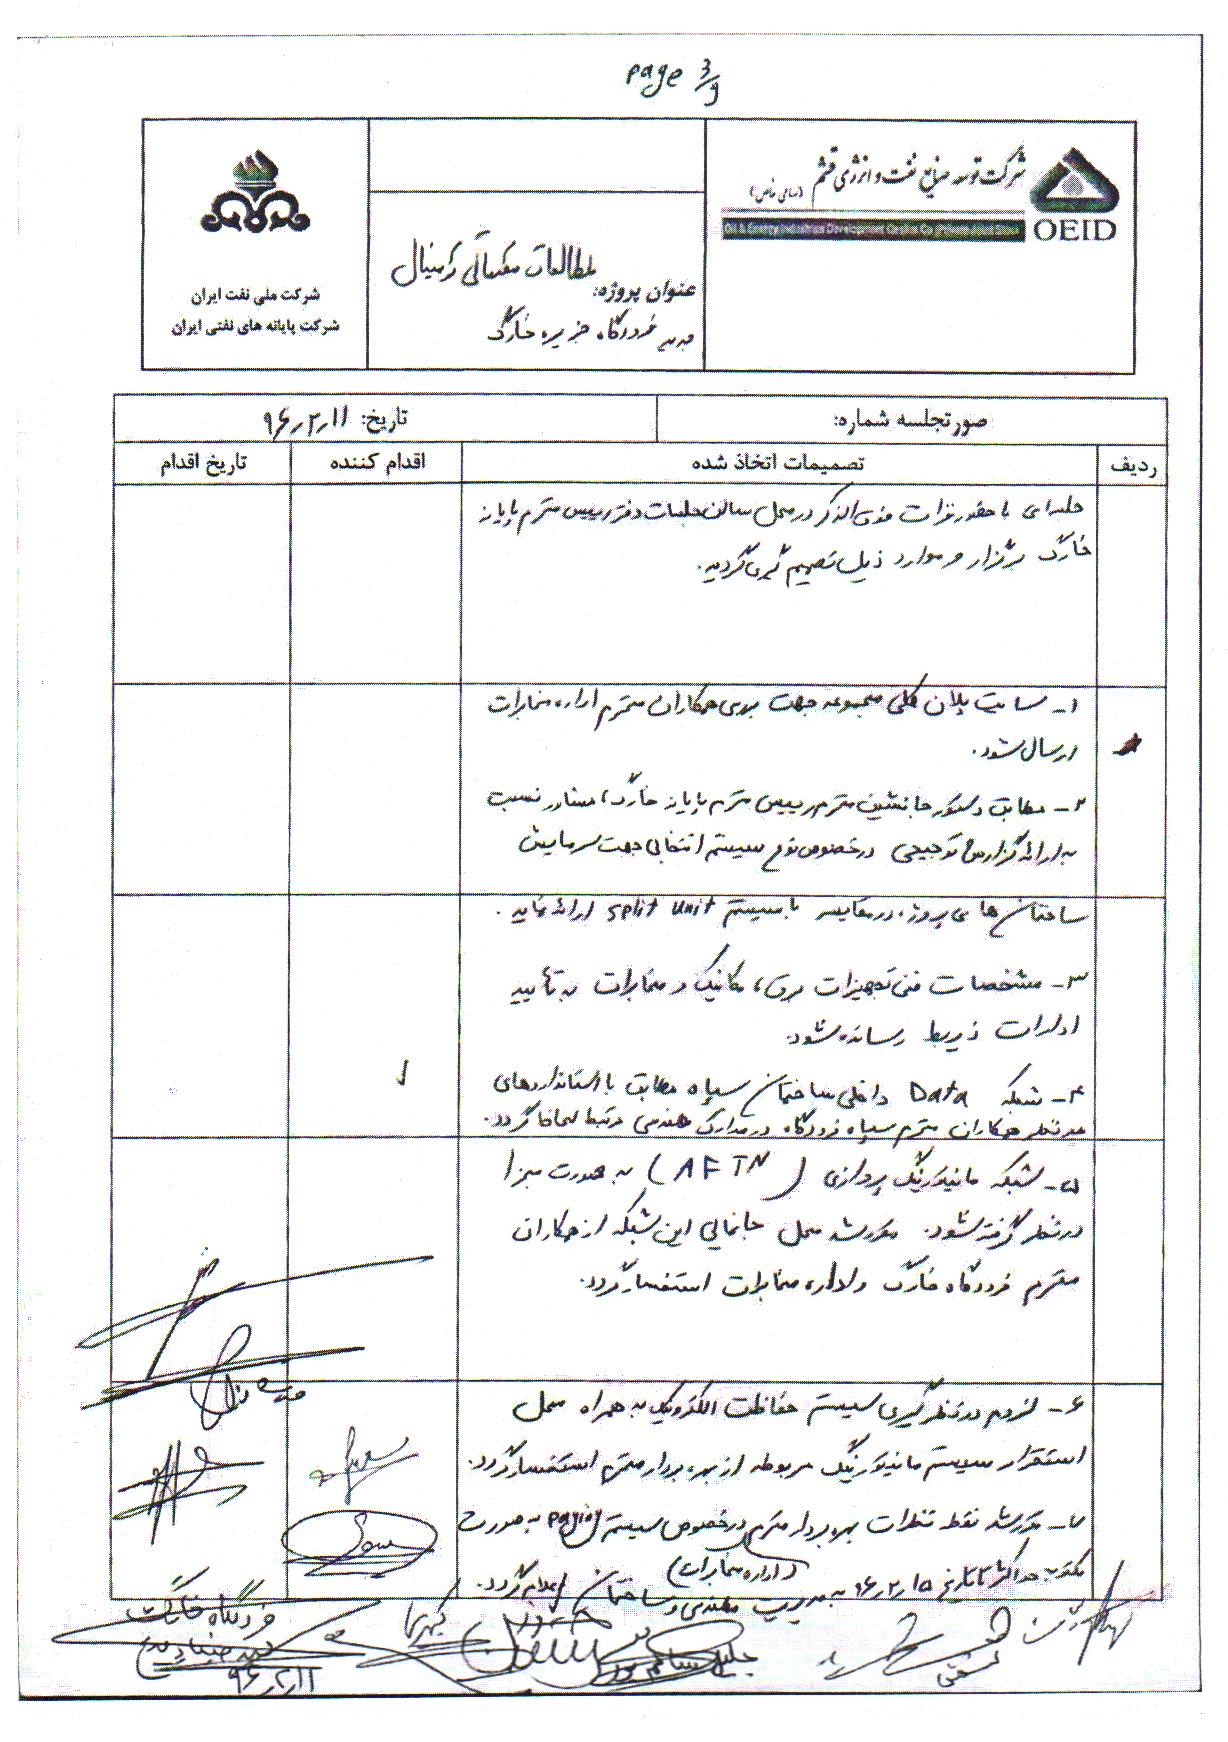 page 3/9
شرکت توسعه صنایع نفت و انرژی قشم
(سهامی خاص)
Oil & Energy Industries Development
OEID
مطالعات مقدماتی ترمینال
عنوان پروژه:
جدید فرودگاه جزیره خارگ
شرکت ملی نفت ایران
شرکت پایانه های نفتی ایران
صورتجلسه شماره:
تاریخ: ۹۶٫۲٫۱۱
ردیف تصمیمات اتخاذ شده اقدام کننده تاریخ اقدام
جلسه ای با حضور نفرات فوق الذکر در محل سالن جلسات دفتر رییس محترم پایانه
خارگ برگزار و موارد ذیل تصمیم گیری گردید.
۱- سایت پلان کلی مجموعه جهت بررسی همکاران محترم اداره مخابرات
ارسال شود.
۲- مطابق دستور جانشین محترم رییس محترم پایانه خارگ، مشاور نسبت
به ارائه گزارش توجیهی در خصوص نوع سیستم انتخابی جهت سرمایش
ساختمان های پروژه در مقایسه با سیستم Split Unit ارائه نماید.
۳- مشخصات فنی تجهیزات برق، مکانیک و مخابرات به تأیید
ادارات ذیربط رسانده شود.
۴- شبکه Data داخلی ساختمان سپاه مطابق با استانداردهای
مدنظر همکاران محترم سپاه فرودگاه در مدارک مهندسی مرتبط لحاظ گردد.
۵- شبکه مانیتورینگ پروازی (AFTN) به صورت مجزا
در نظر گرفته شود. مقرر شد محل جانمایی این شبکه از همکاران
محترم فرودگاه خارگ و اداره مخابرات استفسار گردد.
۶- لزوم در نظر گیری سیستم حفاظت الکترونیک به همراه محل
استقرار سیستم مانیتورینگ مربوطه از بهره بردار محترم استفسار گردد.
۷- مقرر شد نقطه نظرات بهره بردار محترم در خصوص سیستم paging به صورت
(اداره مخابرات)
مکتوب حداکثر تا تاریخ ۹۶٫۲٫۱۵ به مدیریت مهندسی و ساختمان اعلام گردد.
فرودگاه خارگ
۹۶٫۲٫۱۱